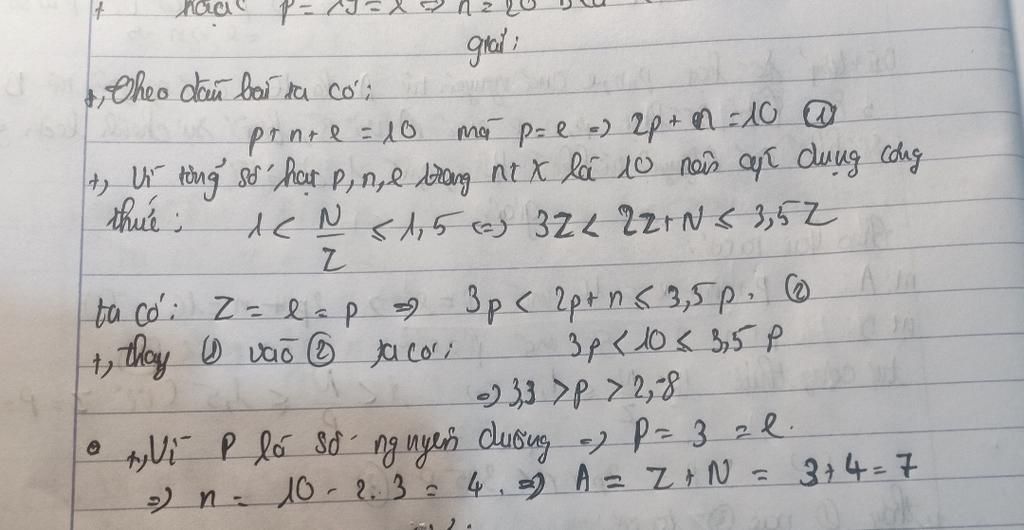 + hoặc p = 19 = e => n = 20
giải:
+, Theo đầu bài ta có:
p+n+e = 10 mà p=e => 2p+n=10 ①
+, Vì tổng số hạt p,n,e trong nt X là 10 nên áp dụng công
thức: 1 < N/Z ≤ 1,5 <=> 3Z < 2Z+N ≤ 3,5Z
ta có: Z = e = p => 3p < 2p+n ≤ 3,5p. ②
+, thay ① vào ② ta có:  3p < 10 ≤ 3,5 p
=> 3,3 > p > 2,8
• +, Vì P là số nguyên dương => P = 3 = e.
=> n = 10 - 2.3 = 4. => A = Z + N = 3+4=7